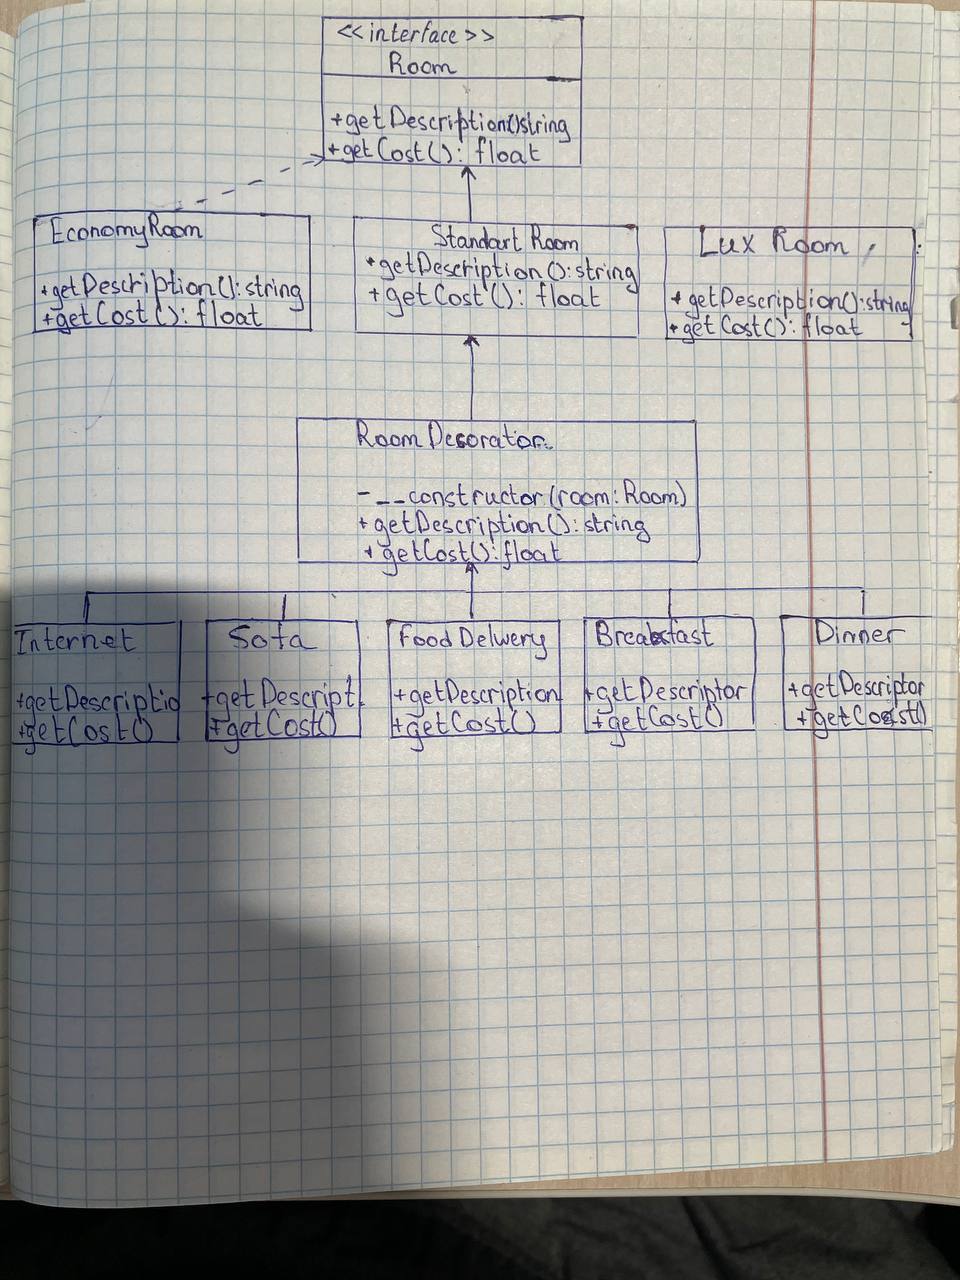 <<interface>>
Room
+getDescription()string
+getCost(): float
EconomyRoom
+getDescription(): string
+getCost(): float
Standart Room
+getDescription(): string
+getCost(): float
Lux Room
+getDescription():string
+getCost(): float
Room Decorator
-__constructor(room:Room)
+getDescription(): string
+getCost():float
Internet
+getDescriptio
+getCost()
Sofa
+getDescript
+getCost()
Food Delivery
+getDescription
+getCost()
Breakfast
+getDescriptor
+getCost()
Dinner
+getDescriptor
+getCost()